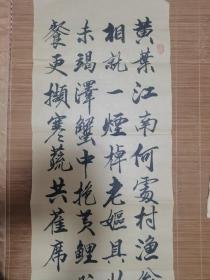 黄葉江南何處村漁翁
相就一煙棹老嫗具
未竭澤蟹中抱黄鯉
餐更擷寒蔬共萑席